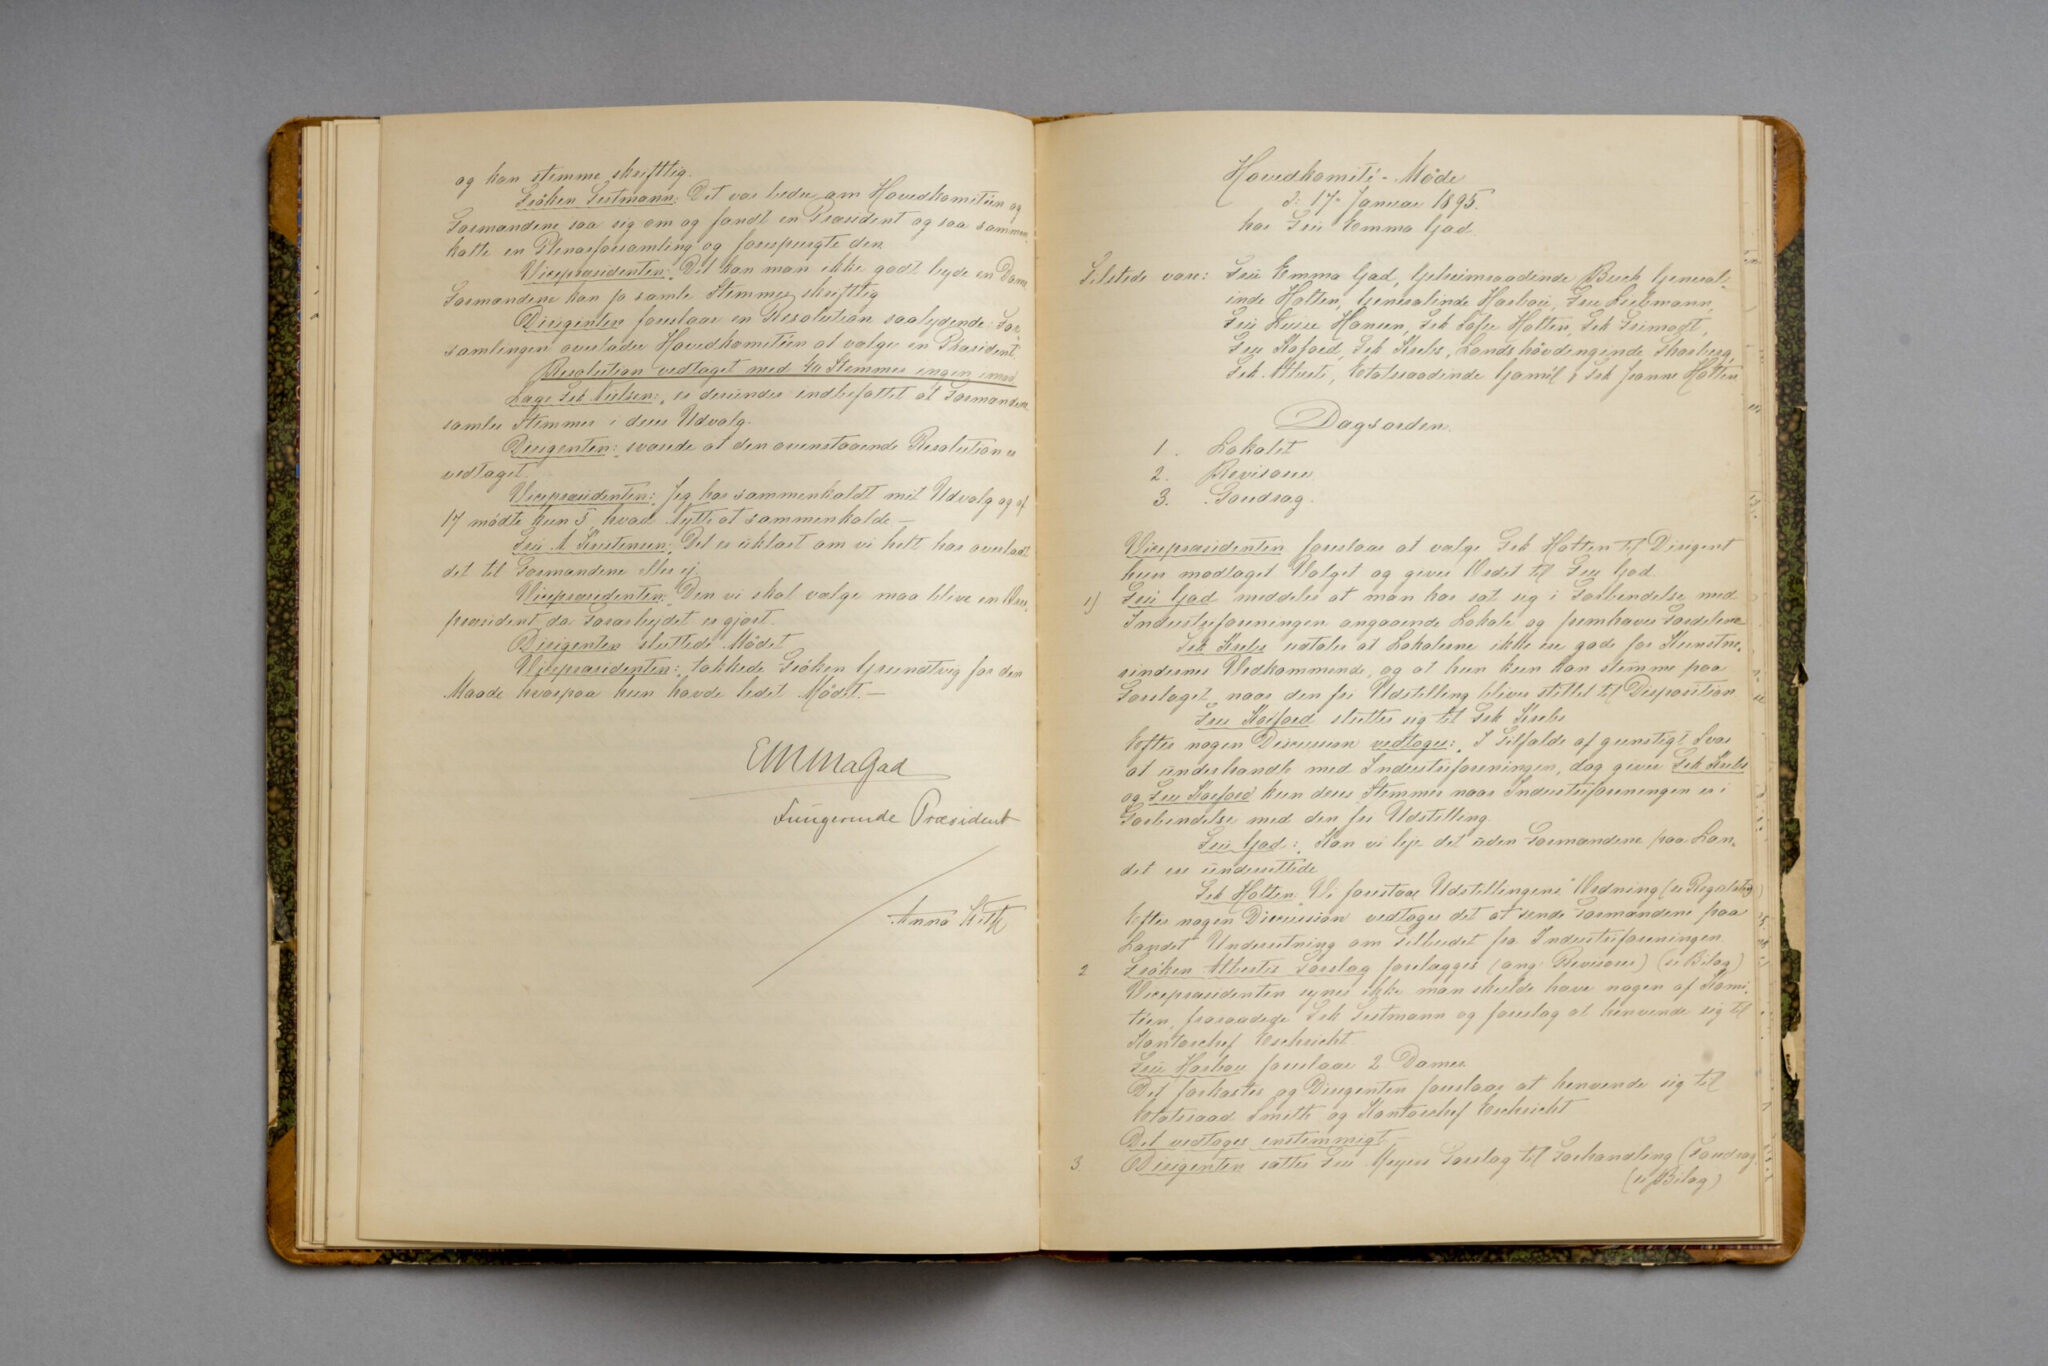 og kan stemme skriftlig.
Frøken Testmann: Det var bedre om Hovedkomitéen og
Formændene saa sig om og fandt en Præsident og saa sammen-
kalte en Plenarforsamling og forespurgte den
Vicepræsidenten: Det kan man ikke godt byde en Dame
Formændene kan jo samle Stemmer skriftlig
Dirigenten foreslaar en Resolution saalydende: For-
samlingen overlader Hovedkomitéen at vælge en Præsident.
Resolution vedtaget med Stemmer ingen imod
Frk Nielsen: er derunder indbefattet at Formændene
samler Stemmer i deres Udvalg.
Dirigenten: svarede at den ovenstaaende Resolution er
vedtaget
Vicepræsidenten: Jeg har sammenkaldt mit Udvalg og af
17 mødte kun 5, hvad Nytte at sammenkalde —
Fru A Kristensen: Det er uklart om vi helt har overladt
det til Formændene eller ej.
Vicepræsidenten: Den vi skal vælge maa blive en Æres-
præsident, da Forarbejdet er gjort.
Dirigenten sluttede Mødet
Vicepræsidenten: takkede Frøken Grundtvig for den
Maade hvorpaa hun havde ledet Mødet. —
Emma Gad
Fungerende Præsident
Anna
Hovedkomité - Møde
d: 17. Januar 1895.
hos Fru Emma Gad.
Tilstede vare: Fru Emma Gad, Geheimeraadinde Buch General-
inde Holten, Generalinde Harbou, Fru Liebmann,
Fru Luise Hansen, Frk Sofie Holten, Frk Grimodt,
Fru Kofoed, Frk Krebs, Landshövdinginde Thorberg,
Frk. Alberti, Etatsraadinde Gamél, Frk Jeanne Holten
Dagsorden.
1. Lokalet
2. Revisorer
3. Foredrag.
Vicepræsidenten foreslaar at vælge Frk Holten til Dirigent
hun modtaget Valget og giver Ordet til Fru Gad.
1) Fru Gad meddeler at man har sat sig i Forbindelse med
Industriforeningen angaaende Lokale og fremhæver Fordelene
Frk Krebs udtaler at Lokalerne ikke ere gode for Kunstne-
rindernes Vedkommende, og at hun kun kan stemme paa
Forslaget, naar den fri Udstilling bliver stillet til Disposition
Fru Kofoed slutter sig til Frk Krebs
Efter nogen Discussion vedtages: I Tilfælde af gunstigt Svar
at underhandle med Industriforeningen, dog giver Frk Krebs
og Fru Kofoed kun deres Stemmer naar Industriforeningen er i
Forbindelse med den fri Udstilling.
Fru Gad: Kan vi leje det uden Formændene paa Lan-
det ere underrettede
Frk Holten: Vi forestaar Udstillingens Ordning (se Regulativ)
Efter nogen Discussion vedtages det at sende Formændene paa
Landet Underretning om Tilbudet fra Industriforeningen
2 Frøken Albertis Forslag forelægges (ang Revisorer) (se Bilag)
Vicepræsidenten synes ikke man skulde have nogen af Komi-
téen, fraraadede Frk Testmann og foreslog at henvende sig til
Kontorchef Eschricht
Fru Harbou foreslaar 2 Damer
Det forkastes og Dirigenten foreslaar at henvende sig til
Etatsraad Smith og Kontorchef Eschricht
Det vedtages enstemmigt.
3. Dirigenten sætter Fru Meyers Forslag til Forhandling (Foredrag
(se Bilag)